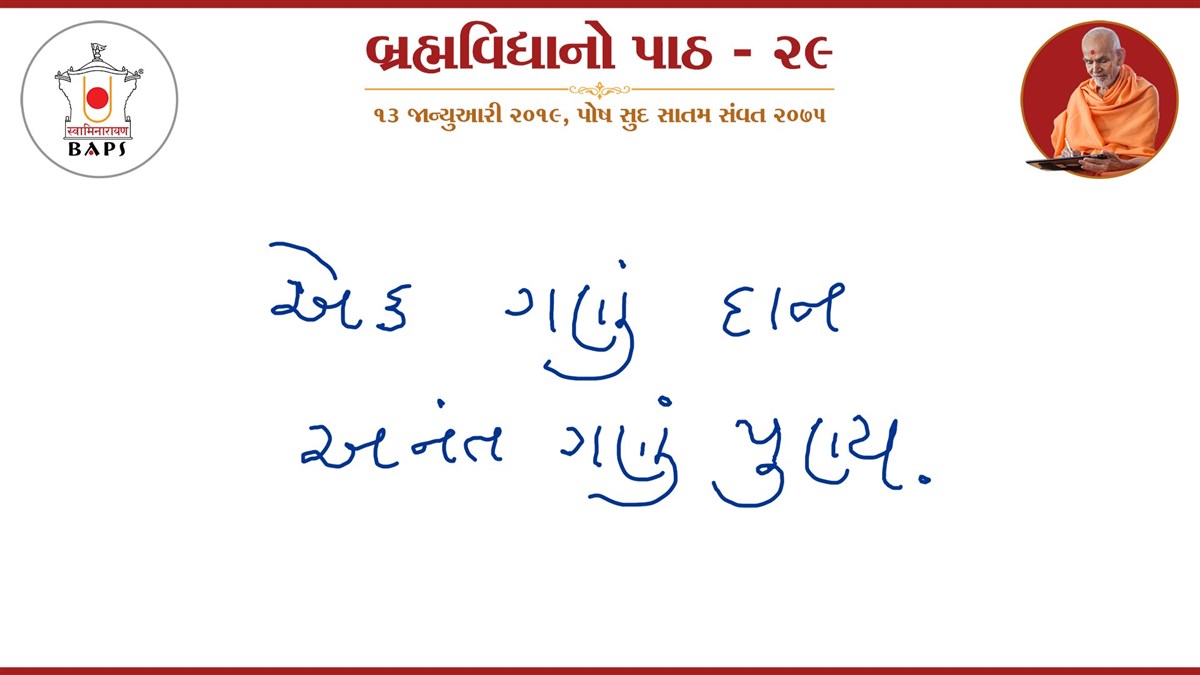 બ્રહ્મવિદ્યાનો પાઠ - ૨૯
૧૩ જાન્યુઆરી ૨૦૧૯, પોષ સુદ સાતમ સંવત ૨૦૭૫
स्वामिनारायण
BAPS
એક ગણું દાન
અનંત ગણું પુણ્ય.